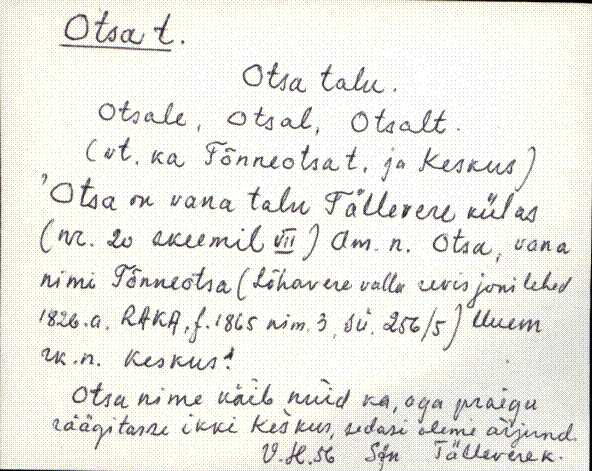 Otsa t.
Otsa talu.
Otsale, Otsal, Otsalt.
(vt. ka Tõnneotsa t. ja Keskus)
"Otsa on vana talu Tällevere külas
(nr. 20 skeemil VII) Am. n. Otsa, vana
nimi Tõnneotsa (Lõhavere valla revisjonilehed
1826.a. RAKA, f. 1865 nim. 3, sü. 256/5) Uuem
rk. n. Keskus."
Otsa nime käib nüid ka, aga praegu
räägitasse ikki Keskus, sedasi oleme arjund.
V.H. 56 Sjn Tällevere k.